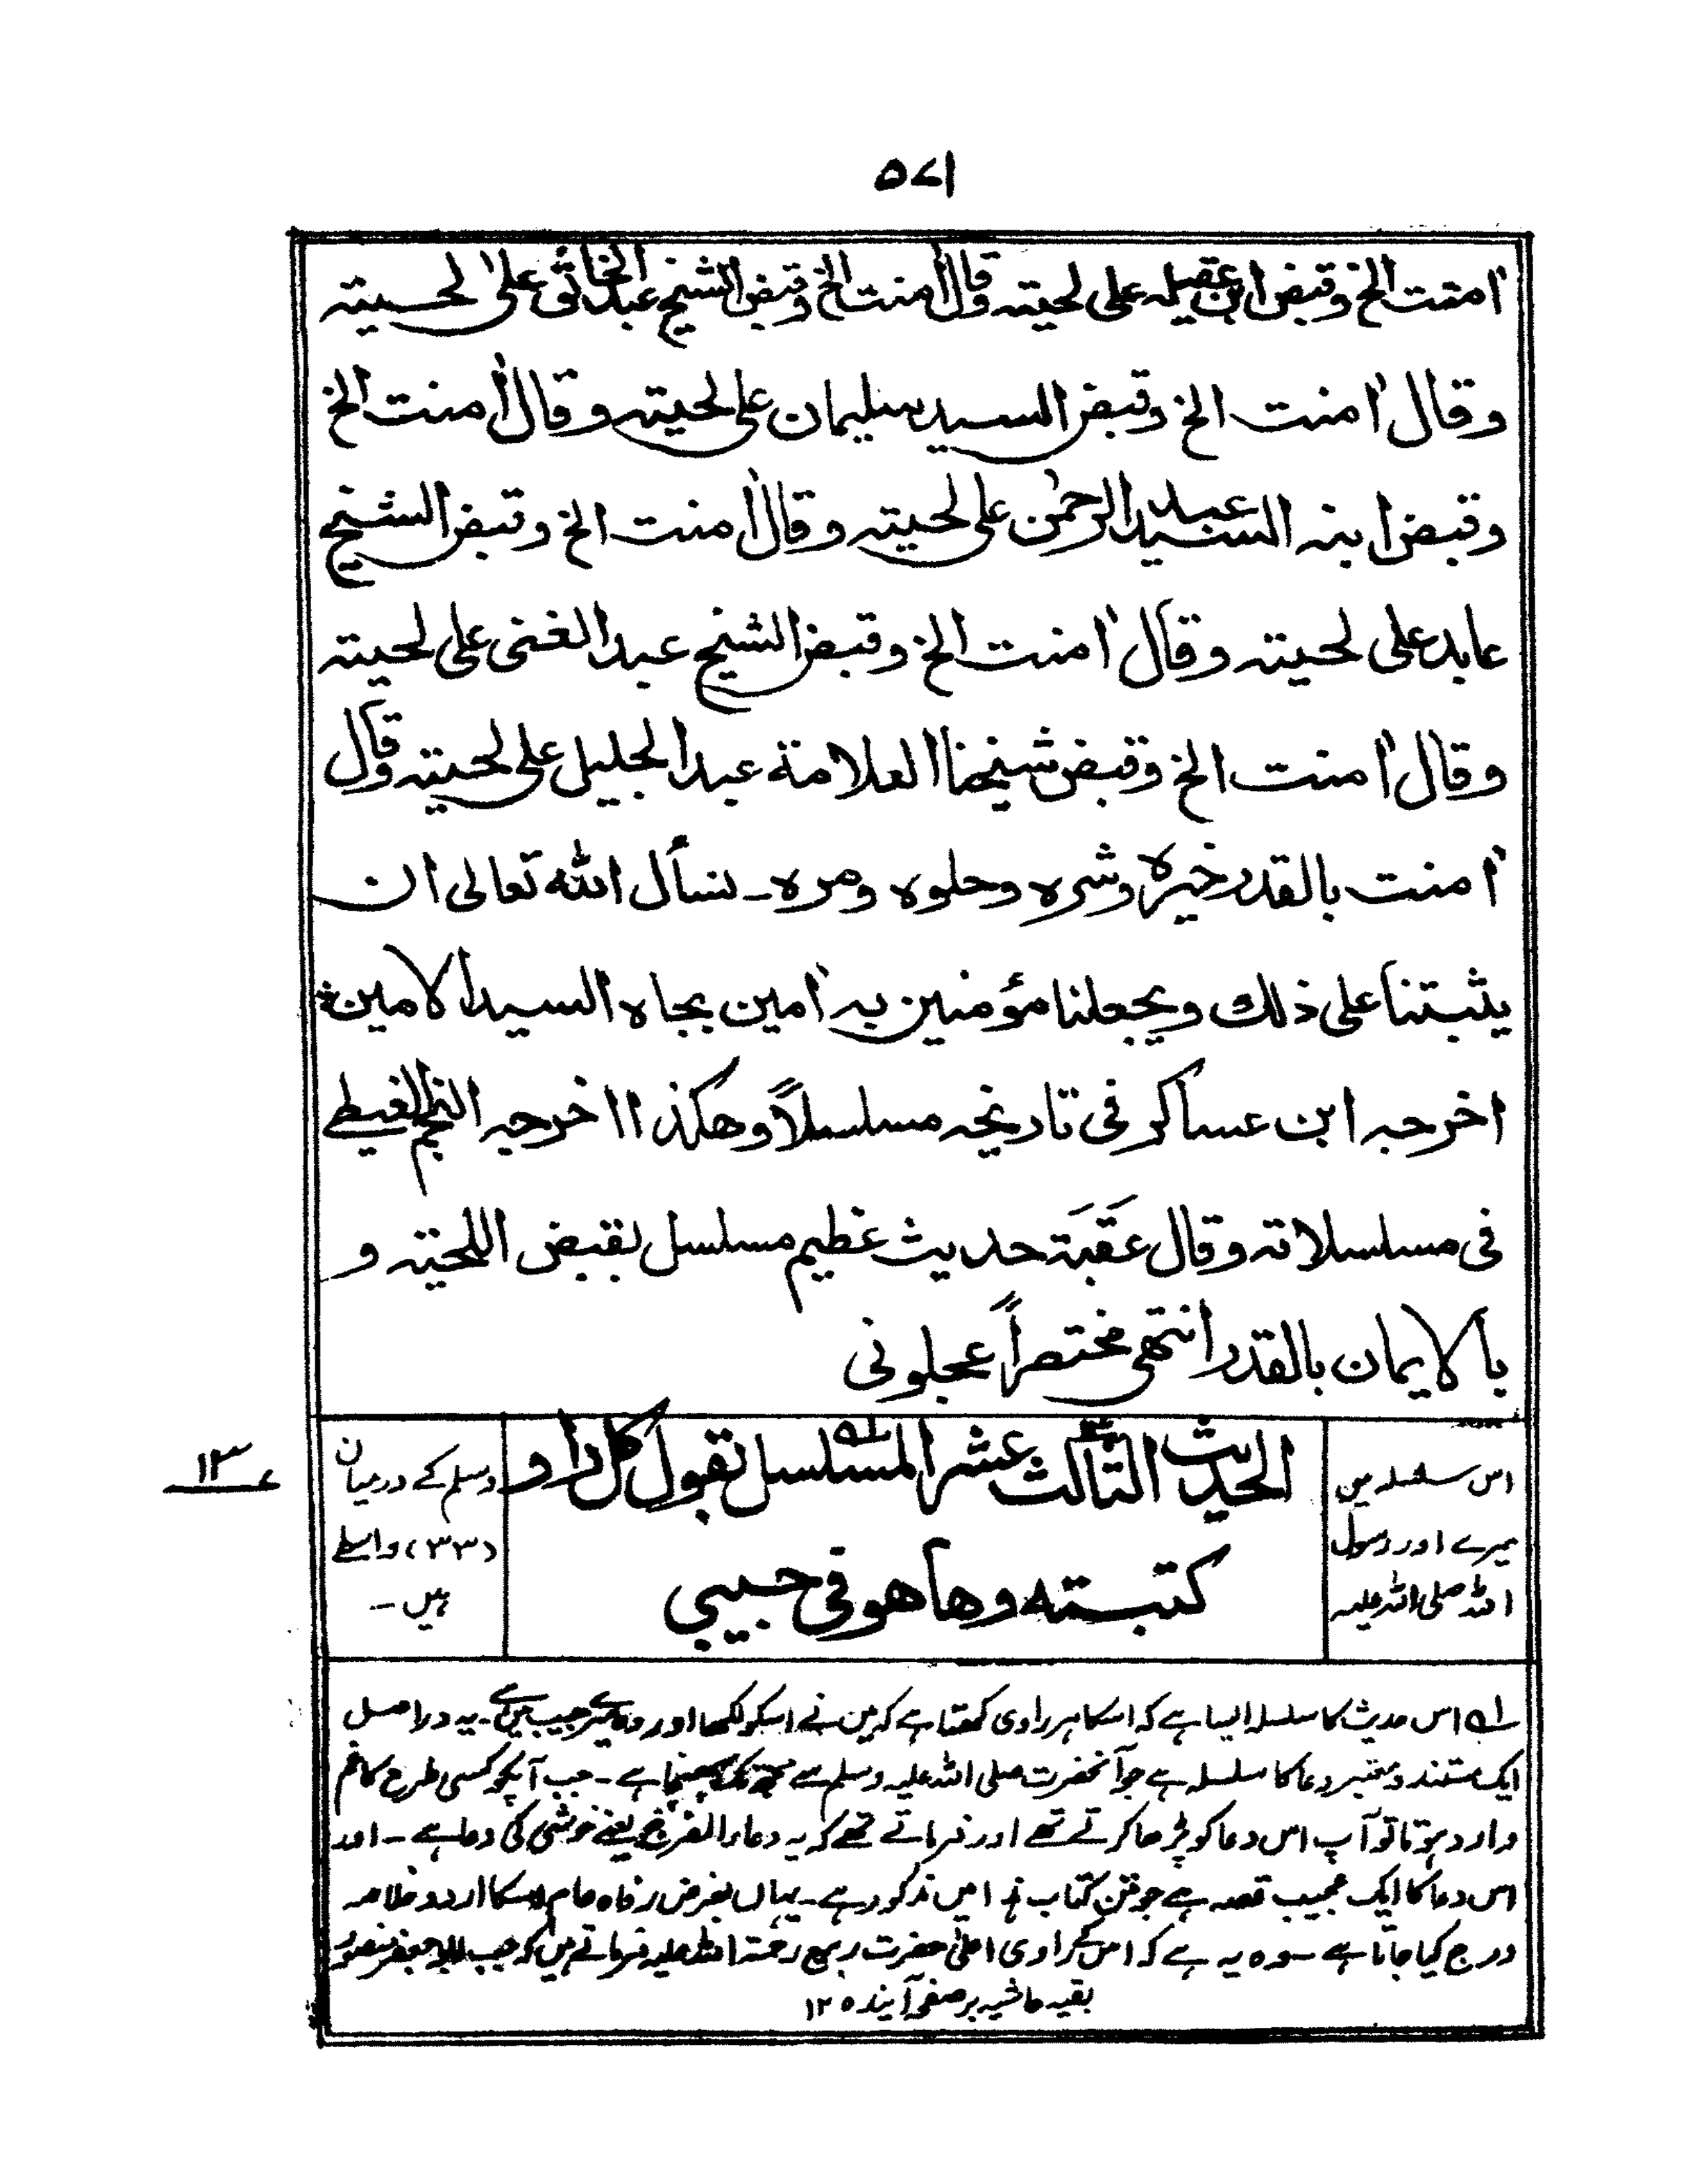 ۵۷۱
اٰمنت الخ وقبض ابن عقيله على لحيته وقال اٰمنت الخ وقبض الشيخ عبدالخالق على لحيته
وقال اٰمنت الخ وقبض السيد سليمان على لحيته وقال اٰمنت الخ
وقبض ابنه السيد عبد الرحمٰن على لحيته وقال اٰمنت الخ وقبض الشيخ
عابد على لحيته وقال اٰمنت الخ وقبض الشيخ عبد الغنى على لحيته
وقال اٰمنت الخ وقبض شيخنا العلامة عبد الجليل على لحيته وقال
اٰمنت بالقدر خيره وشره وحلوه ومره ـ نسأل الله تعالى ان
يثبتنا على ذلك ويجعلنا مؤمنين به اٰمين بجاه السيد الامين
اخرجه ابن عساكر فى تاريخه مسلسلاً وهكذا اخرجه النجم الغيطى
فى مسلسلاته وقال عَقَبَة حديث عظيم مسلسل بقبض اللحيته و
بالايمان بالقدر انتهى مختصراً عجلونى
الحديث الثالث عشر المسلسل بقول كل راو
كتبته وها هو فى جيبي
اس سلسلہ میں
میرے اور رسول
اللہ صلی اللہ علیہ
وسلم کے درمیان
(۳۳) واسطے
ہیں ـ
۱۳ع
لہ اس حدیث کا سلسلہ ایسا ہے کہ اسکا ہر راوی کہتا ہے کہ میں نے اسکو لکھا اور وہ میرے جیب میں ہے ـ یہ دراصل
ایک مستند ومعتبر دعا کا سلسلہ ہے جو آنحضرت صلی اللہ علیہ وسلم سے مجھ تک پہنچا ہے ـ جب آپکو کسی طرح کا غم
وارد ہوتا تو آپ اس دعا کو پڑھا کرتے تھے اور فرماتے تھے کہ یہ دعاء الفرج یعنے خوشی کی دعا ہے ـ اور
اس دعا کا ایک عجیب قصہ ہے جو متن کتاب ہذا میں مذکور ہے ـ یہاں بغرض رفاہ عام اسکا اردو خلاصہ
درج کیا جاتا ہے سو وہ یہ ہے کہ اس کے راوی اعلیٰ حضرت ربیع رحمتہ اللہ علیہ فرماتے ہیں کہ جب ابو جعفر منصور
بقیہ حاشیہ بر صفحہ آیندہ ۱۲